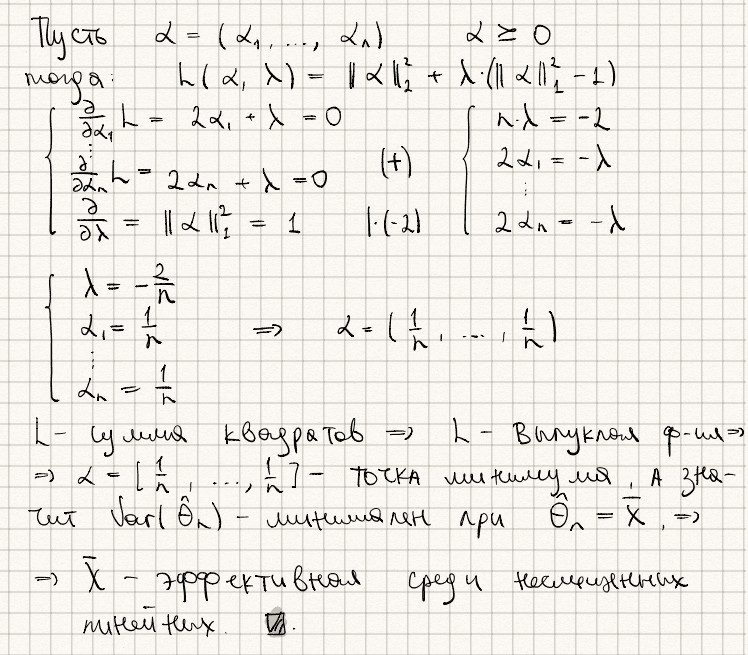 Пусть α = (α₁, ..., αₙ) α ≥ 0
тогда: L(α, λ) = ‖α‖₂² + λ·(‖α‖₁² - 1)
∂/∂α₁ L = 2α₁ + λ = 0
⋮
∂/∂αₙ L = 2αₙ + λ = 0 (+)
∂/∂λ = ‖α‖₁² = 1 |·(-2)
n·λ = -2
2α₁ = -λ
⋮
2αₙ = -λ
λ = -2/n
α₁ = 1/n ⇒ α = (1/n, ..., 1/n)
⋮
αₙ = 1/n
L - сумма квадратов ⇒ L - выпуклая ф-ия ⇒
⇒ α = [1/n, ..., 1/n] - точка минимума, а зна-
чит Var(θ̂ₙ) - минимален при θ̂ₙ = X̄, ⇒
⇒ X̄ - эффективная среди несмещенных
линейных.